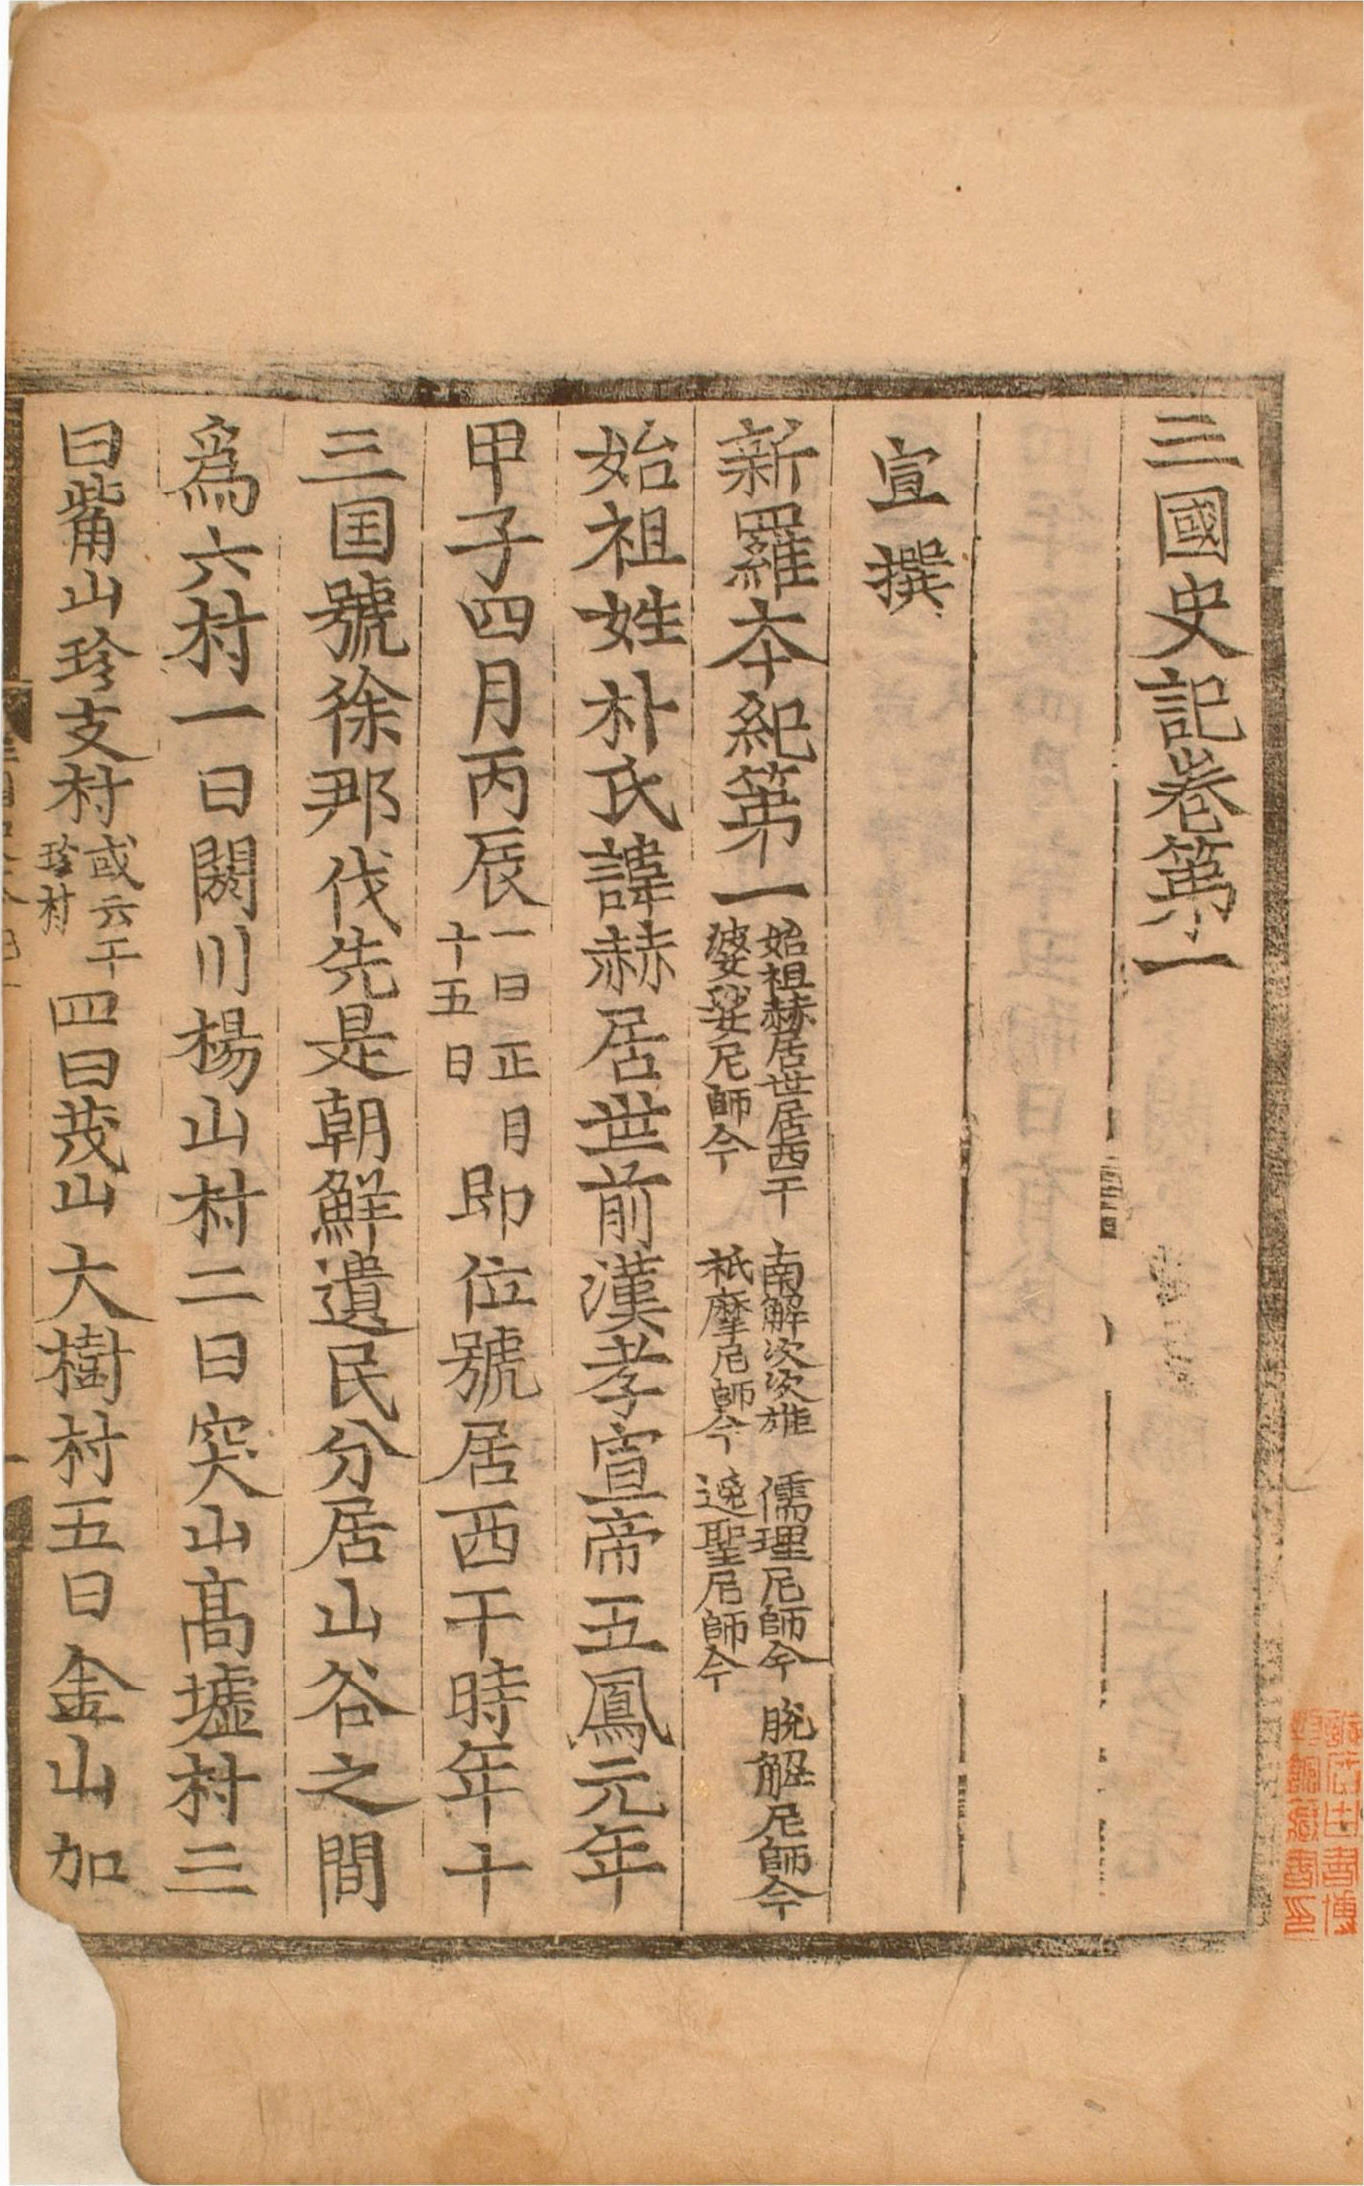 三國史記卷第一
宣撰
新羅夲紀第一 始祖赫居世居西干 南解次次雄 儒理尼師今 脫解尼師今 婆娑尼師今 祇摩尼師今 逸聖尼師今
始祖姓朴氏諱赫居世前漢孝宣帝五鳳元年
甲子四月丙辰 一曰正月十五日 即位號居西干時年十
三囯號徐那伐先是朝鮮遺民分居山谷之間
爲六村一曰閼川楊山村二曰突山髙墟村三
曰觜山珍支村 或云干珍村 四曰茂山大樹村五曰金山加